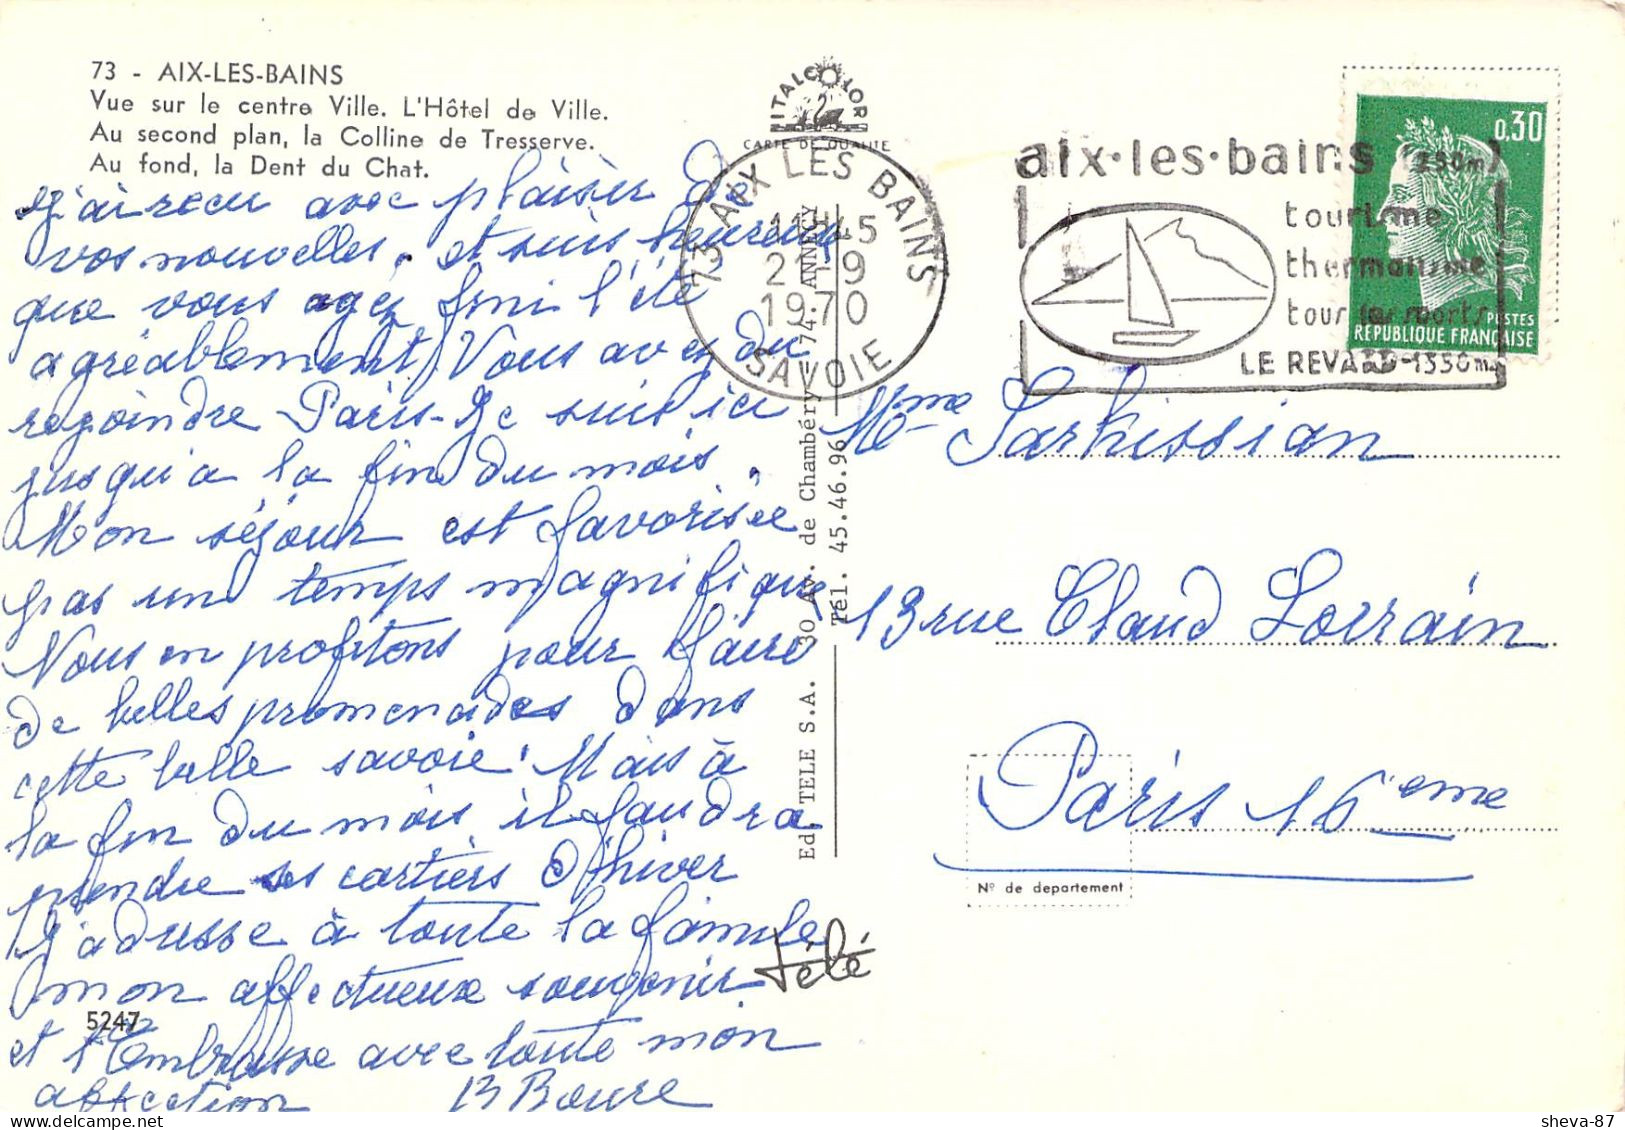 73 - AIX-LES-BAINS
Vue sur le centre Ville. L'Hôtel de Ville.
Au second plan, la Colline de Tresserve.
Au fond, la Dent du Chat.
J'ai reçu avec plaisir de
vos nouvelles. et suis heureux
que vous ayez fini l'été
agréablement, Vous avez du
rejoindre Paris - Je suis ici
jusqu'a la fin du mois.
Mon séjour est favorisée
pas un temps magnifique
Nous en profitons pour faire
de belles promenades dans
cette belle savoie! Mais à
la fin du mois il faudra
prendre ses cartiers d'hiver
J'adresse à toute la famille
mon affectueux souvenir
et t'Embrasse avec toute mon
affection B Boure
5247
ITALCOLOR
CARTE DE QUALITE
73 AIX LES BAINS
11H45
21-9
1970
SAVOIE
Ed. TELE S.A. 30 Av. de Chambéry - 74. ANNECY
Tél. 45.46.96
télé
aix·les·bains (250m)
tourisme
thermalisme
tous les sports
LE REVARD-1550m
0,30
POSTES
REPUBLIQUE FRANÇAISE
Mme Sarkissian
13 rue Claud Lorrain
Paris 16ème
Nº de departement
sheva-87